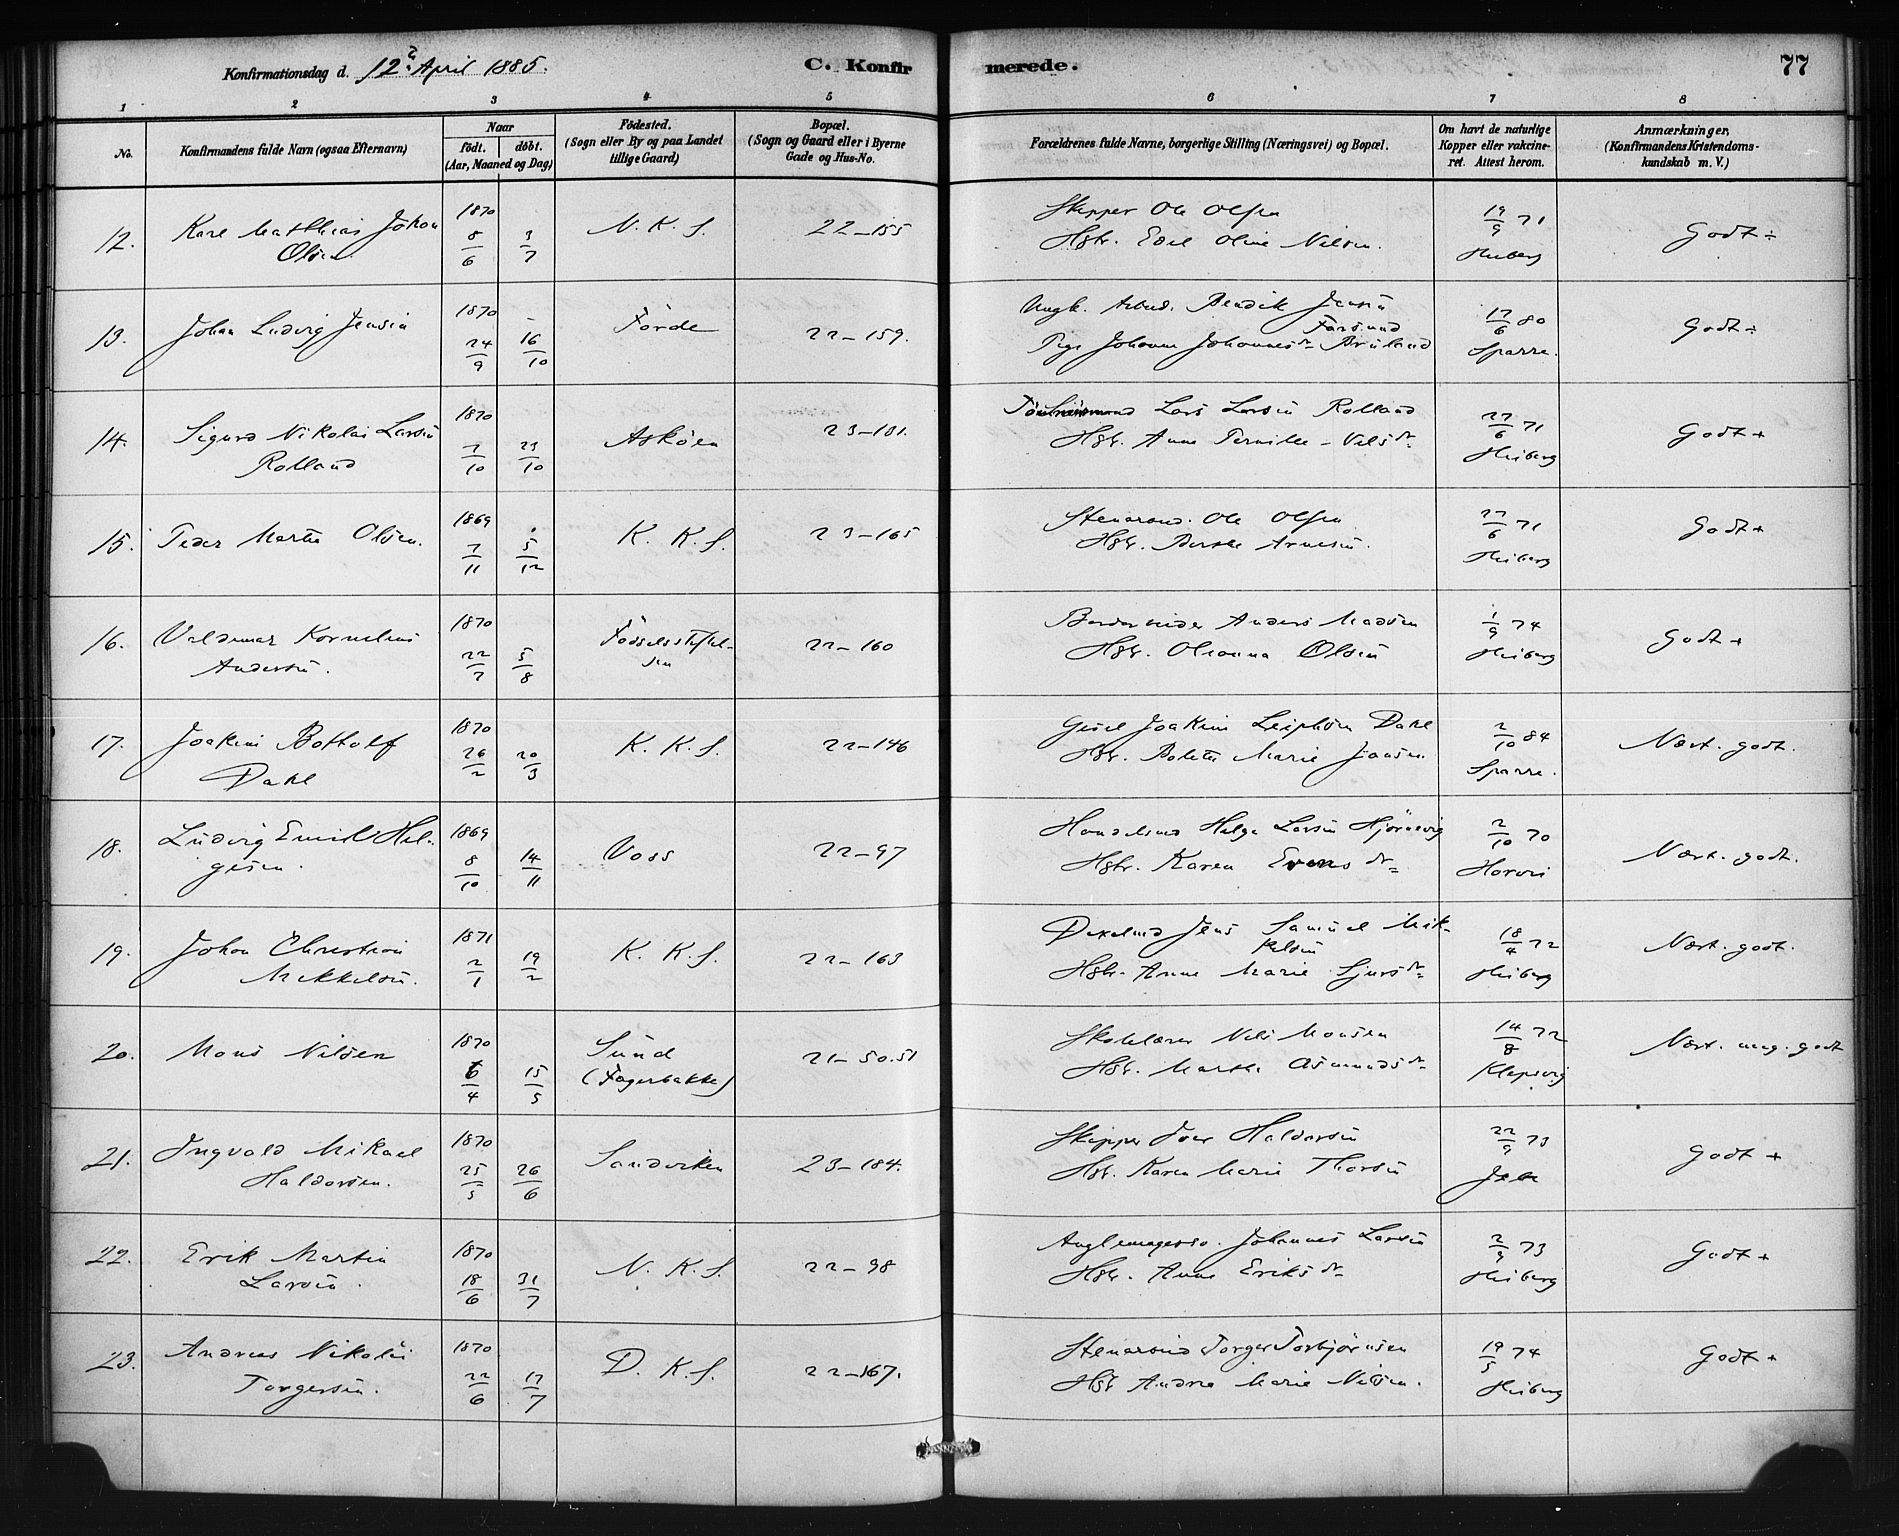 Konfirmationsdag d. 12 April 1885.
C. Konfirmerede.
77
1 2 3 4 5 6 7 8
No.
Konfirmandens fulde Navn (ogsaa Efternavn)
Naar
født. døbt.
(Aar, Maaned og Dag)
Fødested.
(Sogn eller By og paa Landet
tillige Gaard)
Bopæl.
(Sogn og Gaard eller i Byerne
Gade og Hus-No.
Forældrenes fulde Navne, borgerlige Stilling (Næringsvei) og Bopæl.
Om havt de naturlige
Kopper eller vakcine-
ret. Attest herom.
Anmærkninger,
(Konfirmandens Kristendoms-
kundskab m. V.)
12. Karl Mathias Johan
Olsen
1870 8/6 3/7
N. K. S.
22-155
Skipper Ole Olsen
Hstr. Edel Oline Nilsen.
19/9 71
Heiberg
Godt ÷
13. Johan Ludvig Jensen
1870 24/9 16/10
Förde
22-159.
Ungk. Arbud. Bendik Jensen
Farsund
Pige Johanne Johannesdr Bruland
17/6 80
Sparre.
Godt ÷
14. Sigurd Nikolai Larsen
Rolland
1870 7/10 23/10
Askøen
23-181.
Lars Larsen Rolland
Hstr. Anne Pernille Nilsdr
27/6 71
Heiberg
Godt +
15. Peder Martin Olsen.
1869 7/11 5/12
K. K. S.
23-165
Stenarbd. Ole Olsen
Hstr. Berthe Arnesen.
27/6 71
Heiberg
Godt +
16. Valdemar Kornelius
Andersen.
1870 22/7 5/8
Fødselsstiftel-
sen
22-160
Anders Madsen
Hstr. Oleanna Olsen
1/9 74
Heiberg
Godt +
17. Joakim Bottolf
Dahl
1870 26/2 20/3
K. K. S.
22-146
Joakim Dahl
Hstr. Bolette Marie Jansen.
2/10 84
Sparre.
Næst. godt.
18. Ludvig Emil Hel-
gesen.
1869 8/10 14/11
Voss
22-97
Handelsmd Helge Larsen Hjørnevig
Hstr. Karen dr
2/10 70
Næst. godt.
19. Johan Christian
Mikkelsen.
1871 2/1 19/2
K. K. S.
22-163
Jens Samuel Mik-
kelsen
Hstr. Anne Marie Sjursdr
18/4 72
Heiberg
Næst. godt.
20. Mons Nilsen
1870 6/4 15/5
Sund
(Fagerbakke)
21-50.51
Skolelærer Nils Monsen
Hstr. Marthe Asmundsdr
14/8 72
Klepsvig
Næst. meg. godt
21. Ingvald Mikael
Haldorsen.
1870 25/5 26/6
Sandviken
23-184.
Skipper Iver Haldorsen
Hstr. Karen Marie Thorsen
22/9 73
Godt +
22. Erik Martin
Larsen.
1870 18/6 31/7
N. K. S.
22-98
Johannes Larsen
Hstr. Anne Eriksdr
2/9 73
Heiberg
Godt +
23. Andreas Nikolai
Torgersen.
1870 22/6 17/7
D. K. S.
22-167.
Stenarbeid Torger Torbjørnsen
Hstr Andrea Marie Nilsen.
19/5 74
Heiberg
Godt +